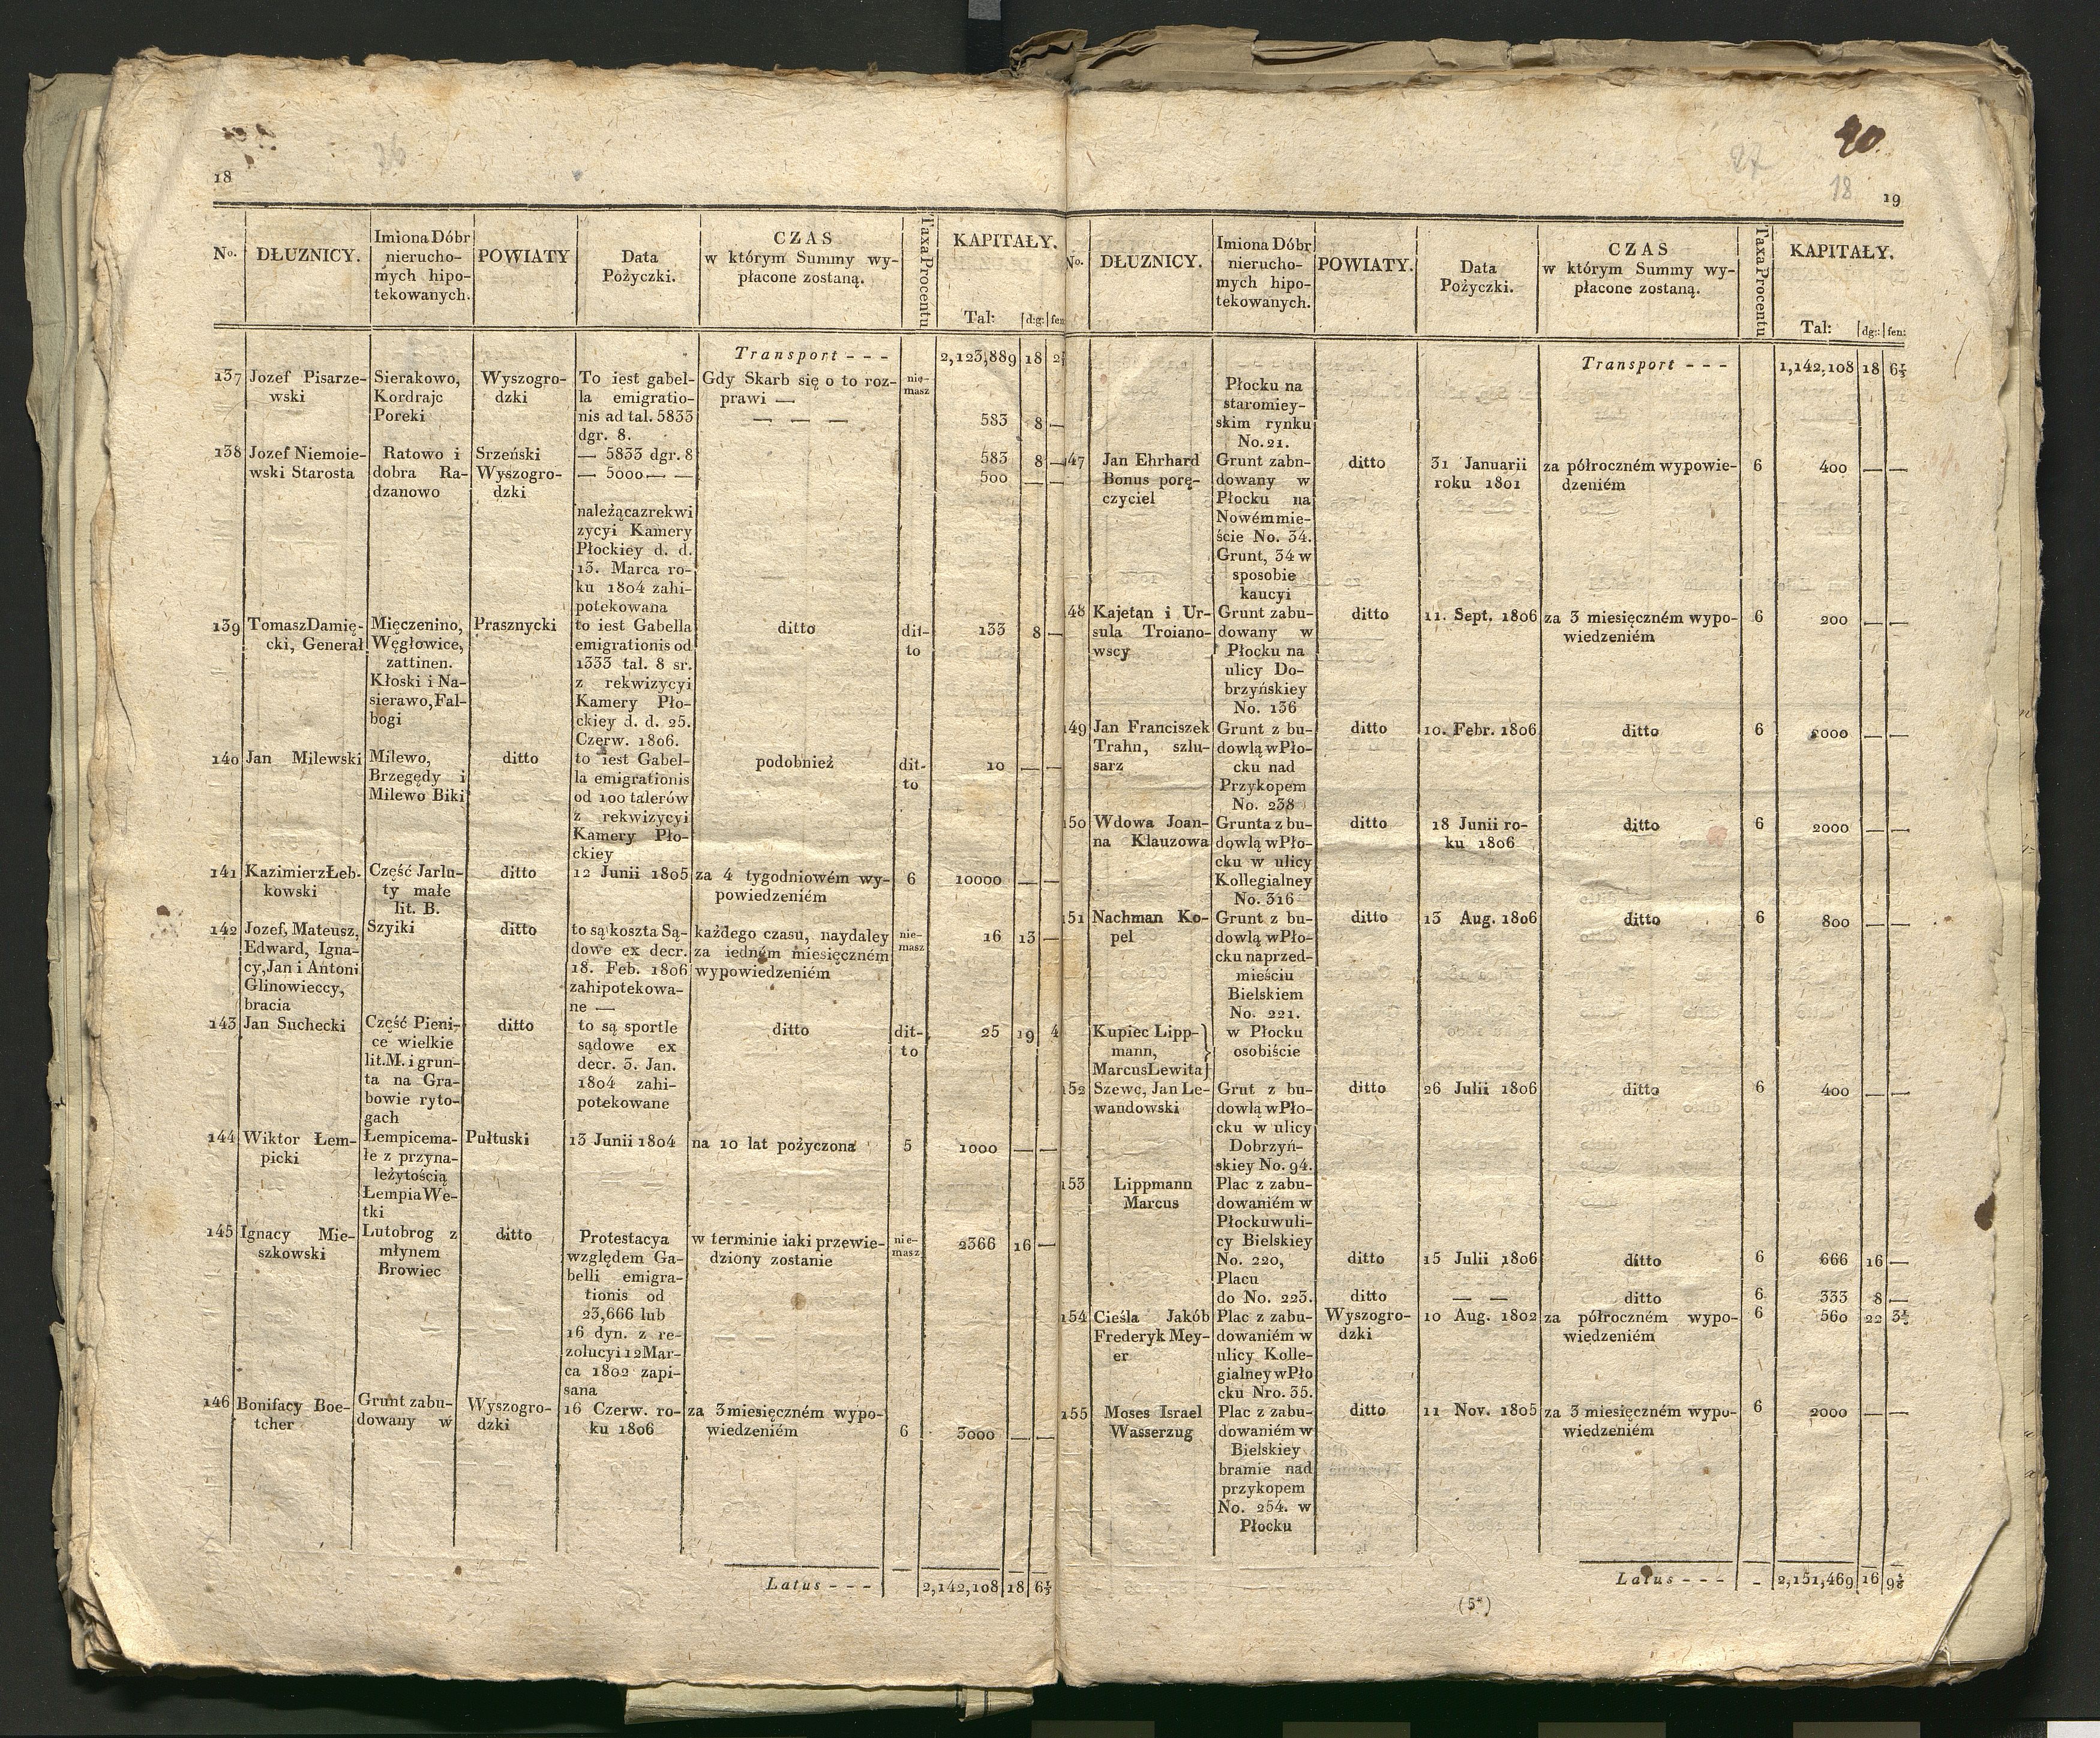 18
26
No.
DŁUZNICY.
Imiona Dóbr
nierucho-
mych hipo-
tekowanych.
POWIATY
Data
Pożyczki.
CZAS
w którym Summy wy-
płacone zostaną.
Taxa Procentu
KAPITAŁY.
Tal: d:g: fen
Transport - - - 2,123,889 18
137 Jozef Pisarze-
wski
Sierakowo,
Kordraje
Poreki
Wyszogro-
dzki
To iest gabel-
la emigratio-
nis ad tal. 5833
dgr. 8.
Gdy Skarb się o to roz-
prawi —
— — —
nie-
masz
583 8 —
138 Jozef Niemoie-
wski Starosta
Ratowo i
dobra Ra-
dzanowo
Srzeński
Wyszogro-
dzki
— 5833 dgr. 8
— 5000 — —
należąca z rekwi
zycyi Kamery
Płockiey d. d.
13. Marca ro-
ku 1804 zahi-
potekowana
583 8 —
500 — —
139 Tomasz Damię-
cki, Generał
Mięczenino,
Węgłowice,
zattinen.
Kłoski i Na-
sierawo, Fal-
bogi
Prasznycki
to iest Gabella
emigrationis od
1333 tal. 8 sr.
z rekwizycyi
Kamery Pło-
ckiey d. d. 25.
Czerw. 1806.
ditto
dit-
to
133 8 —
140 Jan Milewski
Milewo,
Brzegędy i
Milewo Biki
ditto
to iest Gabel-
la emigrationis
od 100 talerów
z rekwizycyi
Kamery Pło-
ckiey
podobnież
dit-
to
10 — —
141 Kazimierz Łeb-
kowski
Część Jarlu-
ty małe
lit. B.
ditto
12 Junii 1805
za 4 tygodniowém wy-
powiedzeniém
6
10000 — —
142 Jozef, Mateusz,
Edward, Igna-
cy, Jan i Antoni
Glinowieccy,
bracia
Szyiki
ditto
to są koszta Są-
dowe ex decr.
18. Feb. 1806
zahipotekowa-
ne —
każdego czasu, naydaley
za iedném miesięczném
wypowiedzeniém
nie-
masz
16 13 —
143 Jan Suchecki
Część Pieni-
ce wielkie
lit. M. i grun-
ta na Gra-
bowie ryto-
gach
ditto
to są sportle
sądowe ex
decr. 3. Jan.
1804 zahi-
potekowane
ditto
dit-
to
25 19 4
144 Wiktor Łem-
picki
Łempice ma-
łe z przyna-
leżytością
Łempia We-
tki
Pułtuski
13 Junii 1804
na 10 lat pożyczona
5
1000 — —
145 Ignacy Mie-
szkowski
Lutobrog z
młynem
Browiec
ditto
Protestacya
względem Ga-
belli emigra-
tionis od
23,666 lub
16 dyn. z re-
zolucyi 12 Mar-
ca 1802 zapi-
sana
w terminie iaki przewie-
dziony zostanie
nie-
masz
2366 16 —
146 Bonifacy Boe-
tcher
Grunt zabu-
dowany w
Wyszogro-
dzki
16 Czerw. ro-
ku 1806
za 3 miesięczném wypo-
wiedzeniém
6
3000 — —
Latus - - - 2,142,108 18
20.
27
18
19
No.
DŁUZNICY.
Imiona Dóbr
nierucho-
mych hipo-
tekowanych.
POWIATY.
Data
Pożyczki.
CZAS
w którym Summy wy-
płacone zostaną.
Taxa Procentu
KAPITAŁY.
Tal: dg: fen:
Transport - - - 1,142,108 18
Płocku na
staromiey-
skim rynku
No. 21.
147 Jan Ehrhard
Bonus porę-
czyciel
Grunt zabn-
dowany w
Płocku na
Nowém mie-
ście No. 34.
Grunt, 34 w
sposobie
kaucyi
ditto
31 Januarii
roku 1801
za półroczném wypowie-
dzeniém
6
400 — —
148 Kajetan i Ur-
sula Troiano-
wscy
Grunt zabu-
dowany w
Płocku na
ulicy Do-
brzyńskiey
No. 136
ditto
11. Sept. 1806
za 3 miesięczném wypo-
wiedzeniém
6
200 — —
149 Jan Franciszek
Trahn, szlu-
sarz
Grunt z bu-
dowlą w Pło-
cku nad
Przykopem
No. 238
ditto
10. Febr. 1806
ditto
6
2000 — —
150 Wdowa Joan-
na Klauzowa
Grunta z bu-
dowlą w Pło-
cku w ulicy
Kollegialney
No. 316
ditto
18 Junii ro-
ku 1806
ditto
6
2000 — —
151 Nachman Ko-
pel
Grunt z bu-
dowlą w Pło-
cku na przed-
mieściu
Bielskiem
No. 221.
ditto
13 Aug. 1806
ditto
6
800 — —
Kupiec Lipp-
mann,
Marcus Lewita
w Płocku
osobiście
152 Szewc, Jan Le-
wandowski
Grut z bu-
dowlą w Pło-
cku w ulicy
Dobrzyń-
skiey No. 94.
ditto
26 Julii 1806
ditto
6
400 — —
153 Lippmann
Marcus
Plac z zabu-
dowaniém w
Płocku w uli-
cy Bielskiey
No. 220,
Placu
do No. 223.
ditto
15 Julii 1806
ditto
6
666 16 —
ditto
— —
ditto
6
333 8 —
154 Cieśla Jakób
Frederyk Mey-
er
Plac z zabu-
dowaniém w
ulicy Kolle-
gialney w Pło
cku Nro. 35.
Wyszogro-
dzki
10 Aug. 1802
za półroczném wypo-
wiedzeniém
6
560 22
155 Moses Israel
Wasserzug
Plac z zabu-
dowaniém w
Bielskiey
bramie nad
przykopem
No. 254. w
Płocku
ditto
11 Nov. 1805
za 3 miesięczném wypo-
wiedzeniém
6
2000 — —
Latus - - - - 2,151,469 16
(5*)